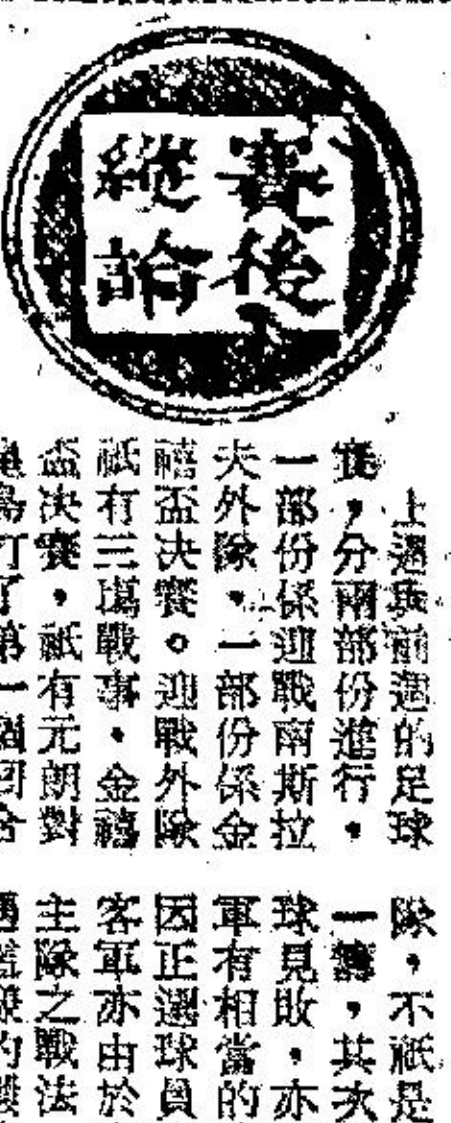 賽後
縱論
上週與前週的足球
賽，分兩部份進行，
一部份係迎戰南斯拉
夫外隊，一部份係金
禧盃決賽。迎戰外隊
祇有三場戰事，金禧
盃決賽，祇有元朗對
島打了第一個回合
隊，不祇是
一籌，其次
球見敗，亦
軍有相當的
因正選球員
客軍亦由於
主隊之戰法
遇的